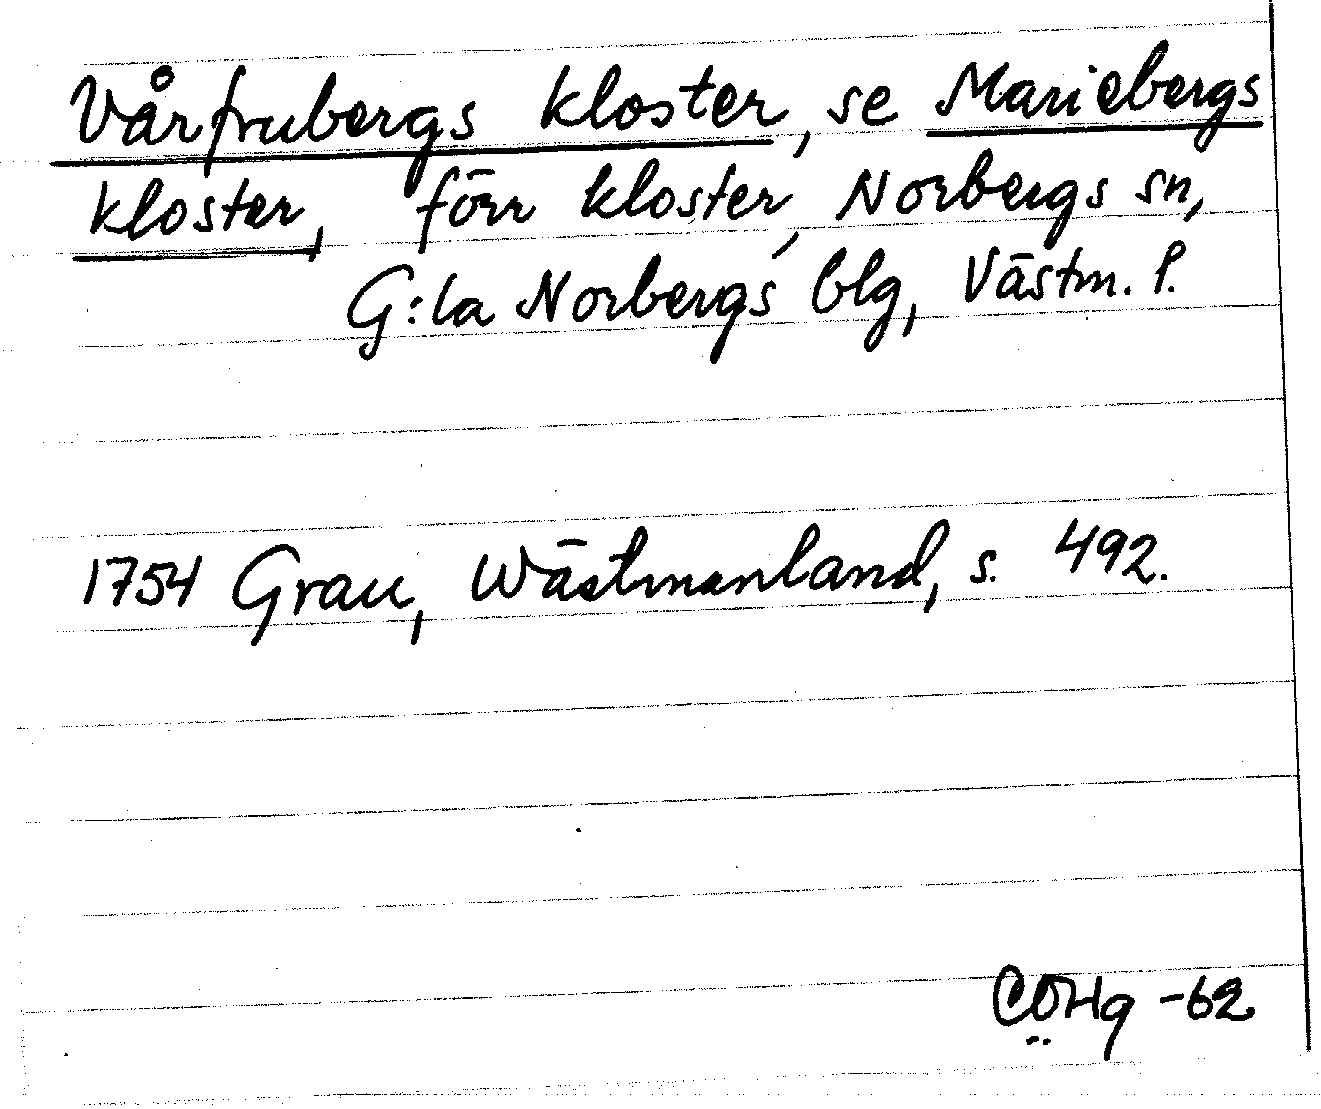 Vårfrubergs kloster, se Mariebergs
kloster, förr kloster, Norbergs sn,
G:la Norbergs blg, Västm. l.
1754 Grau, Wästmanland, s. 492.
COHg -62